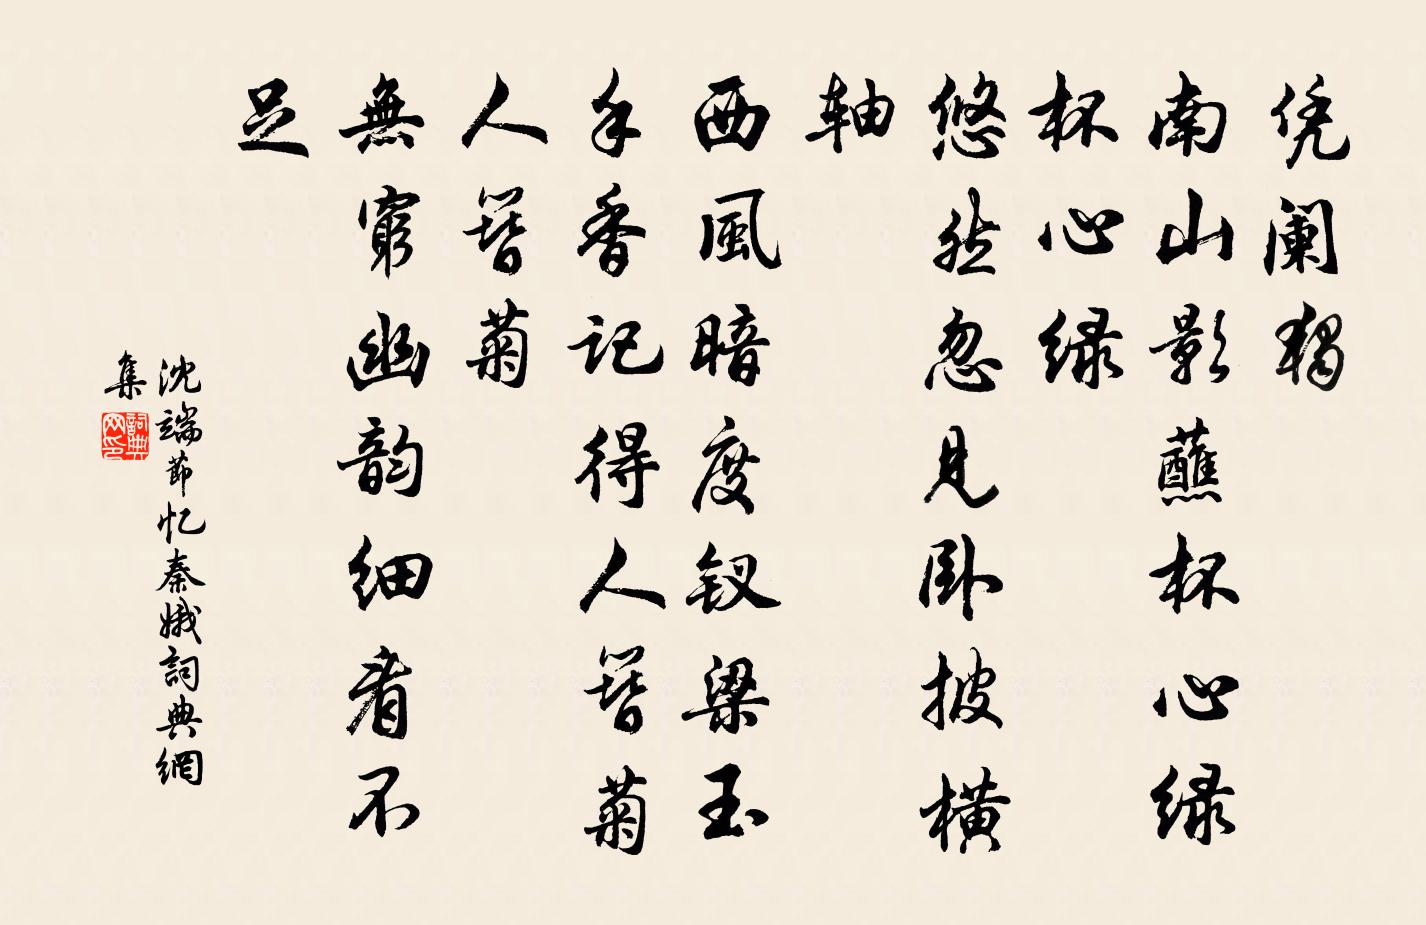 凭阑獨
南山影蘸杯心绿
杯心绿
悠然忽見卧披横
軸
西風暗度钗梁玉
手香記得人簪菊
人簪菊
無窮幽韵细看不
足
沈端節忆秦娥詞典網
集
詞典网印